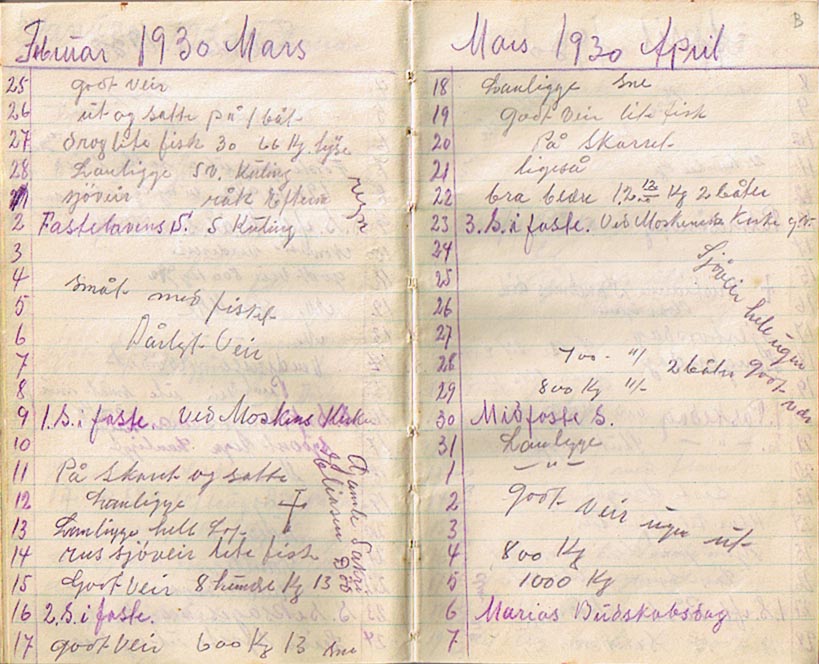 Februar 1930 Mars
25 godt veir
26 ut og satte på 1 båt
27 drog lite fisk 30 66 Kg. lyse
28 Lanligge SV. Kuling
sjöveir råk Eftem
2 Fastelavens S. S Kuling
3
4 småt med fisket
5
6 Dårlyt Veir
7
8
9 1. S. i faste. Ved Moskens Kirke
10
11 På Skaret og satte
12 Lanligge
13 Lanligge helt
14 sjöveir lite fisk
15 Godt Veir 8 hundre Kg 13
16 2. S. i faste.
17 godt Veir 600 Kg 13 sne
Gamle
Elinsen Död
B
Mars 1930 April
18 Lanligge sne
19 godt Veir lite fisk
20 På Skaret
21 ligeså
22 bra bedre Kg 2 båter
23 3. S. i faste. Ved Moskenes Kirke
24
25 Sjöveir hele ugen
26
27
28 700 - "/ 2 båter godt veir
29 800 Kg "/-
30 Midfaste S.
31 Lanligge
1 - " -
2 godt Veir ugen ut
3
4 800 Kg
5 1000 Kg
6 Marias Budskabsdag
7